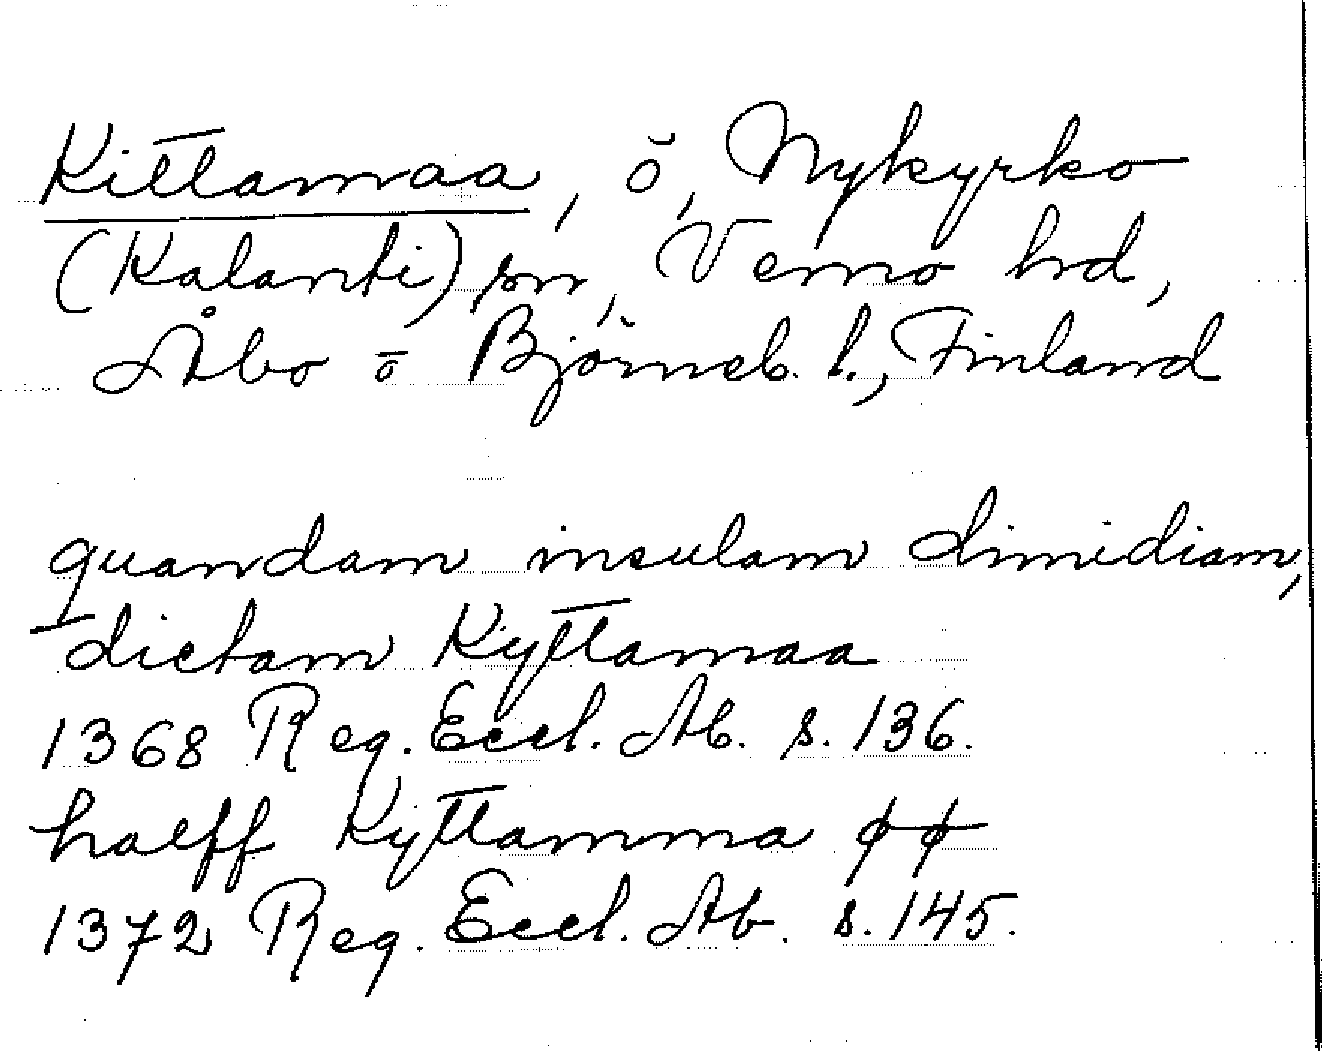 Kittamaa, ö, Nykyrko
(Kalanti) sn, Vemo hd,
Åbo o Björneb. l., Finland
quandam insulam dimidiam,
dictam Kyttamaa
1368 Reg. Eccl. Ab. s. 136.
halff Kyttamma øø
1372 Reg. Eccl. Ab. s. 145.